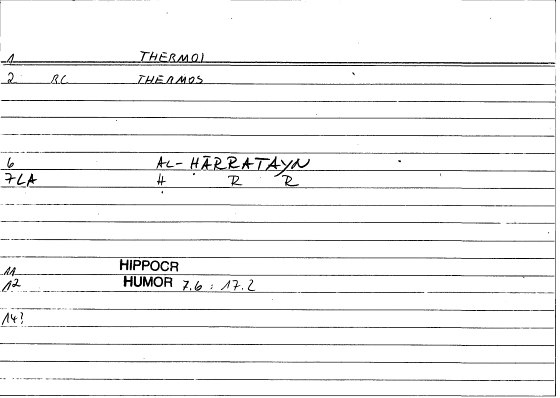 1 THERMOI
2 RC THERMOS
6 AL-ḤARRATAYN
7LA Ḥ R R
11 HIPPOCR
12 HUMOR 7.6 : 17.2
14?